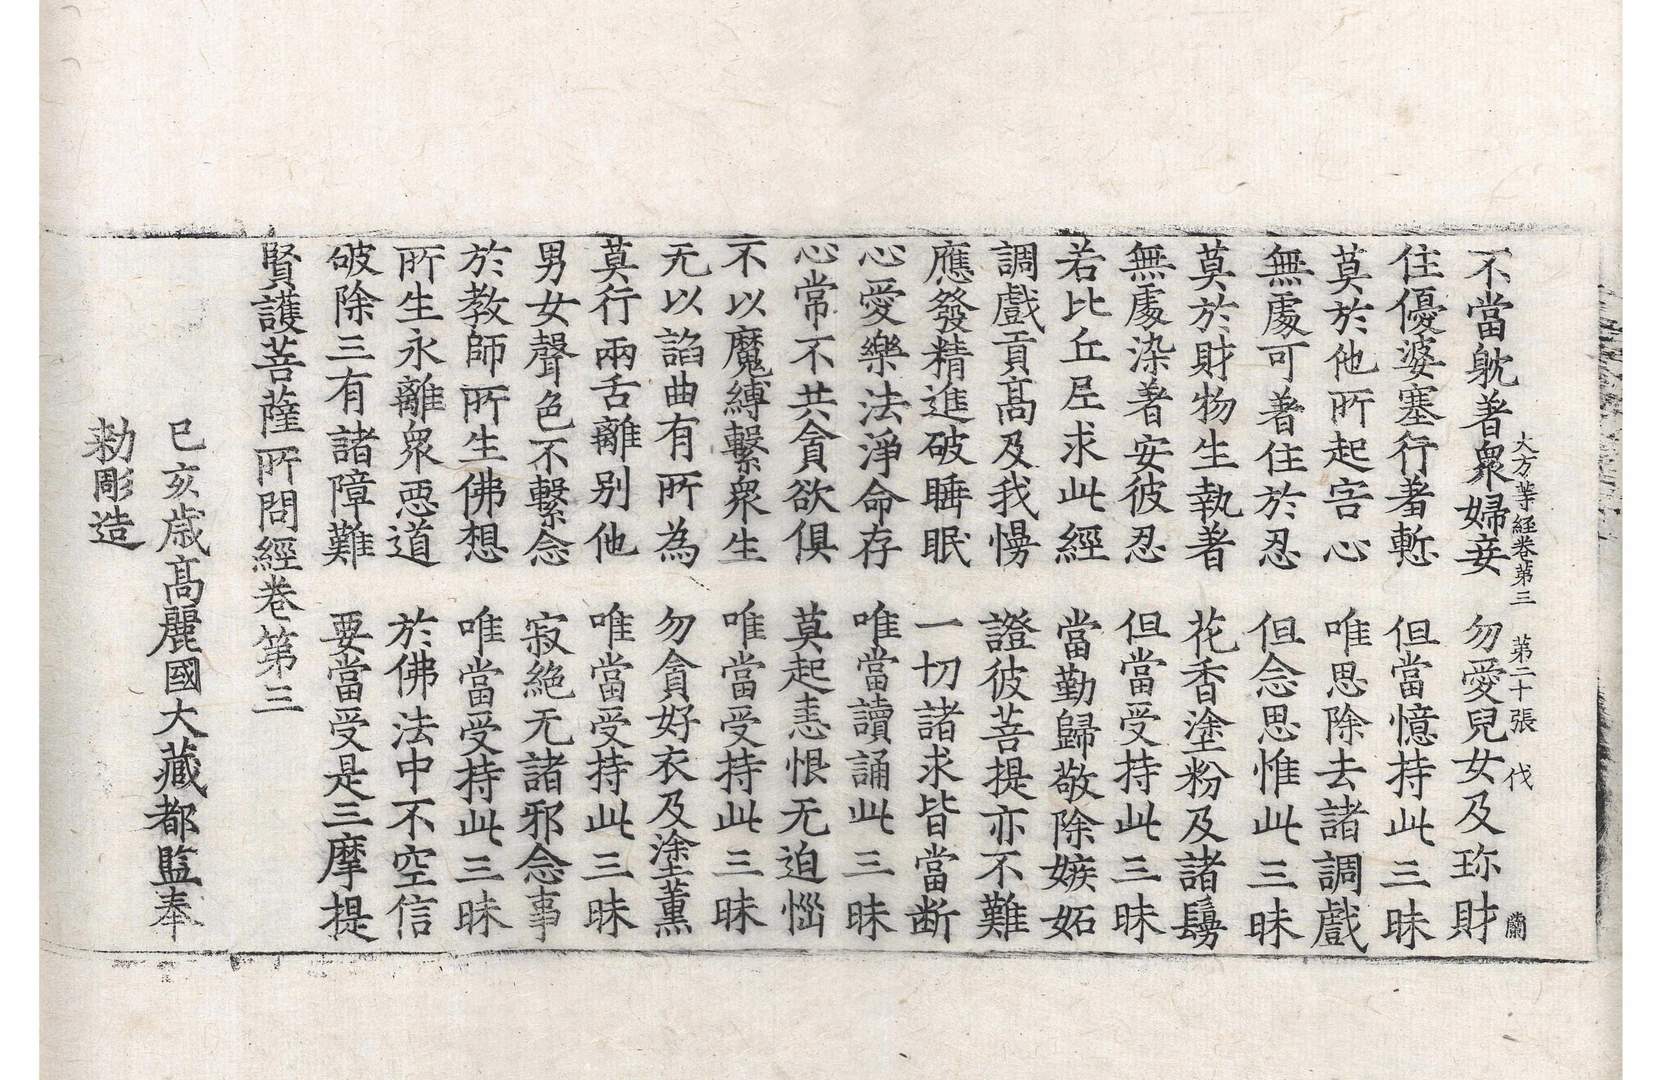 大方等経卷第三 第二十張 伐
不當躭著衆婦妾 勿愛兒女及珎財
住優婆塞行著慙 但當憶持此三昧
莫於他所起害心 唯思除去諸調戲
無處可著住於忍 但念思惟此三昧
莫於財物生執著 花香塗粉及諸鬘
無處染著安彼忍 但當受持此三昧
若比丘𡰱求此經 當勤歸敬除嫉妬
調戲貢高及我慢 證彼菩提亦不難
應發精進破睡眠 一切諸求皆當断
心愛樂法淨命存 唯當讀誦此三昧
心常不共貪欲俱 莫起恚恨无迫惱
不以魔縛繫衆生 唯當受持此三昧
无以諂曲有所為 勿貪好衣及塗薰
莫行兩舌離别他 唯當受持此三昧
男女聲色不繫念 寂絶无諸邪念事
於教師所生佛想 唯當受持此三昧
所生永離衆惡道 於佛法中不空信
破除三有諸障難 要當受是三摩提
賢護菩薩所問經卷第三
己亥歲高麗國大藏都監奉
勅彫造